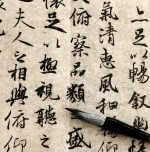 足以暢叙幽
氣清惠風和暢
俯察品類之盛
懷足以極視聽之
夫人之相與俯仰